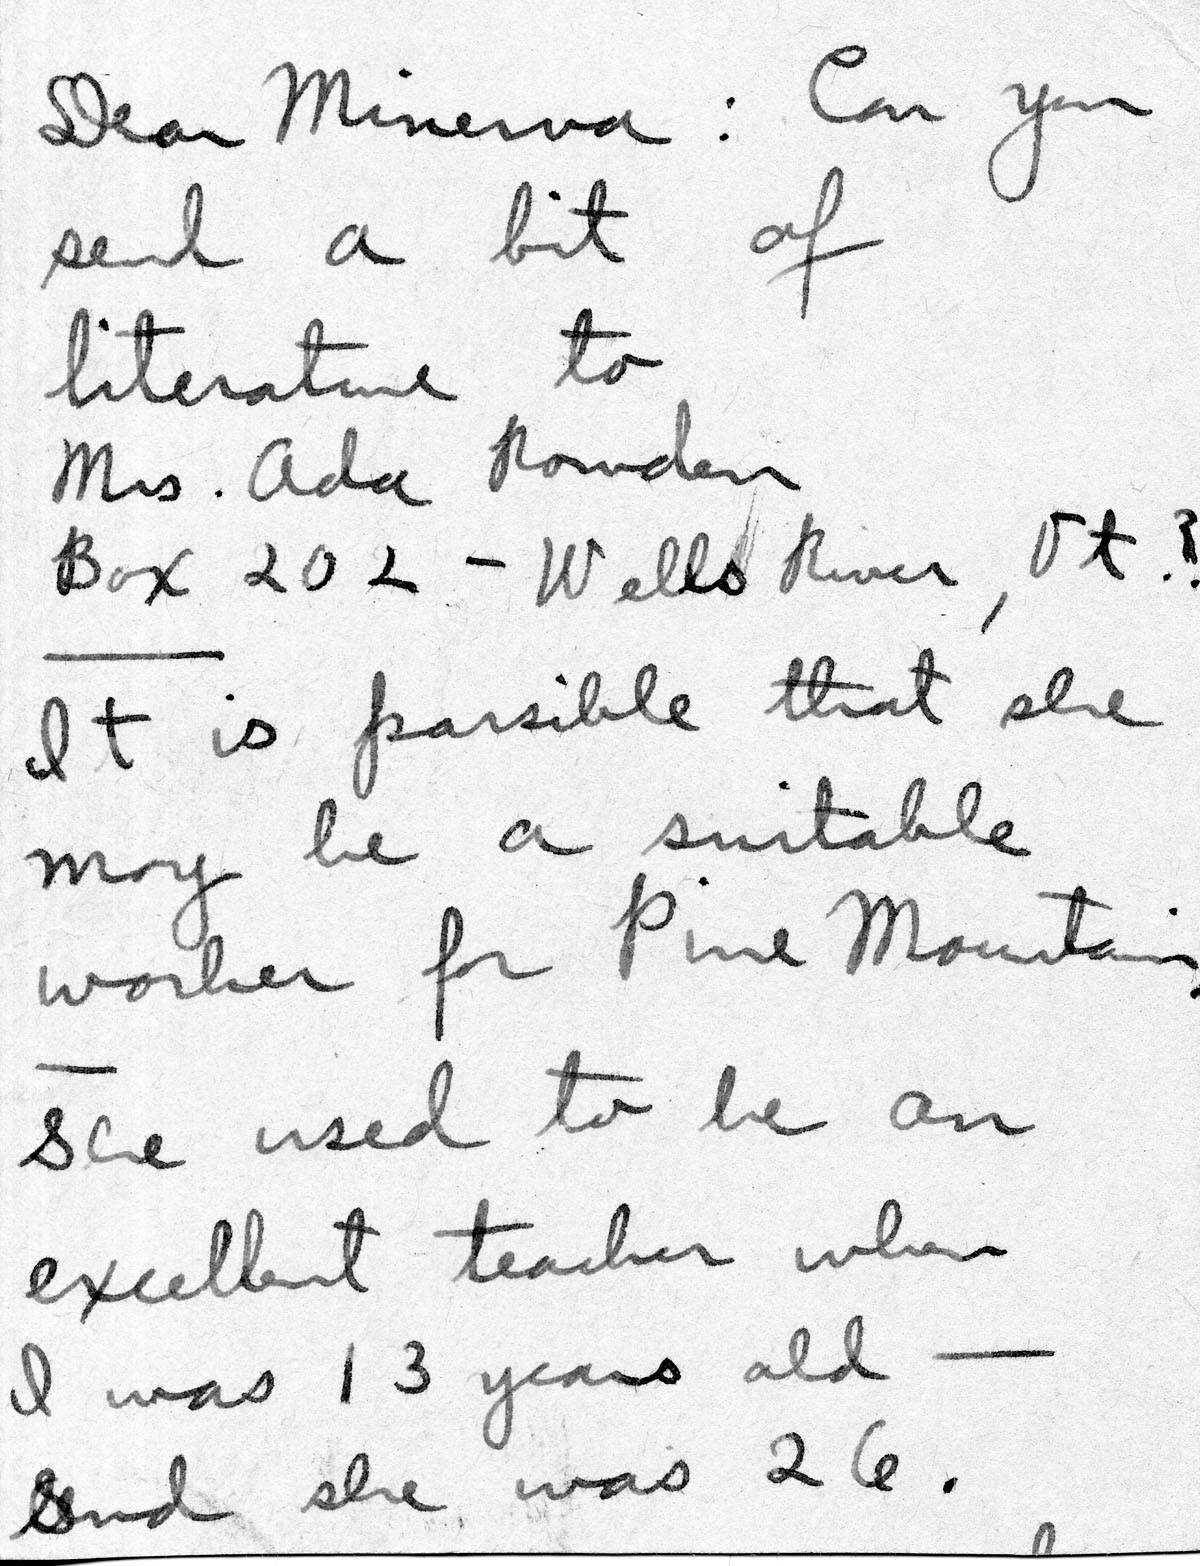 Dear Minerva : Can you
send a bit of
literature to
Mrs. Ada Rowden
Box 202 - Wells River, Vt.?
It is possible that she
may be a suitable
worker for Pine Mountain,
She used to be an
excellent teacher when
I was 13 years old —
and she was 26.